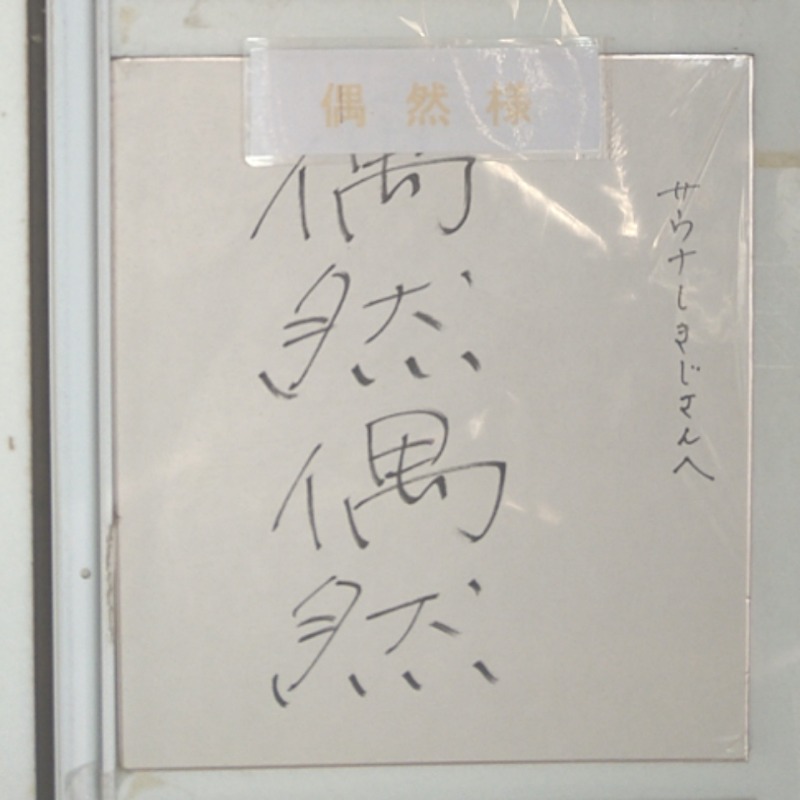 偶然様
サウナしきじさんへ
偶然
偶然